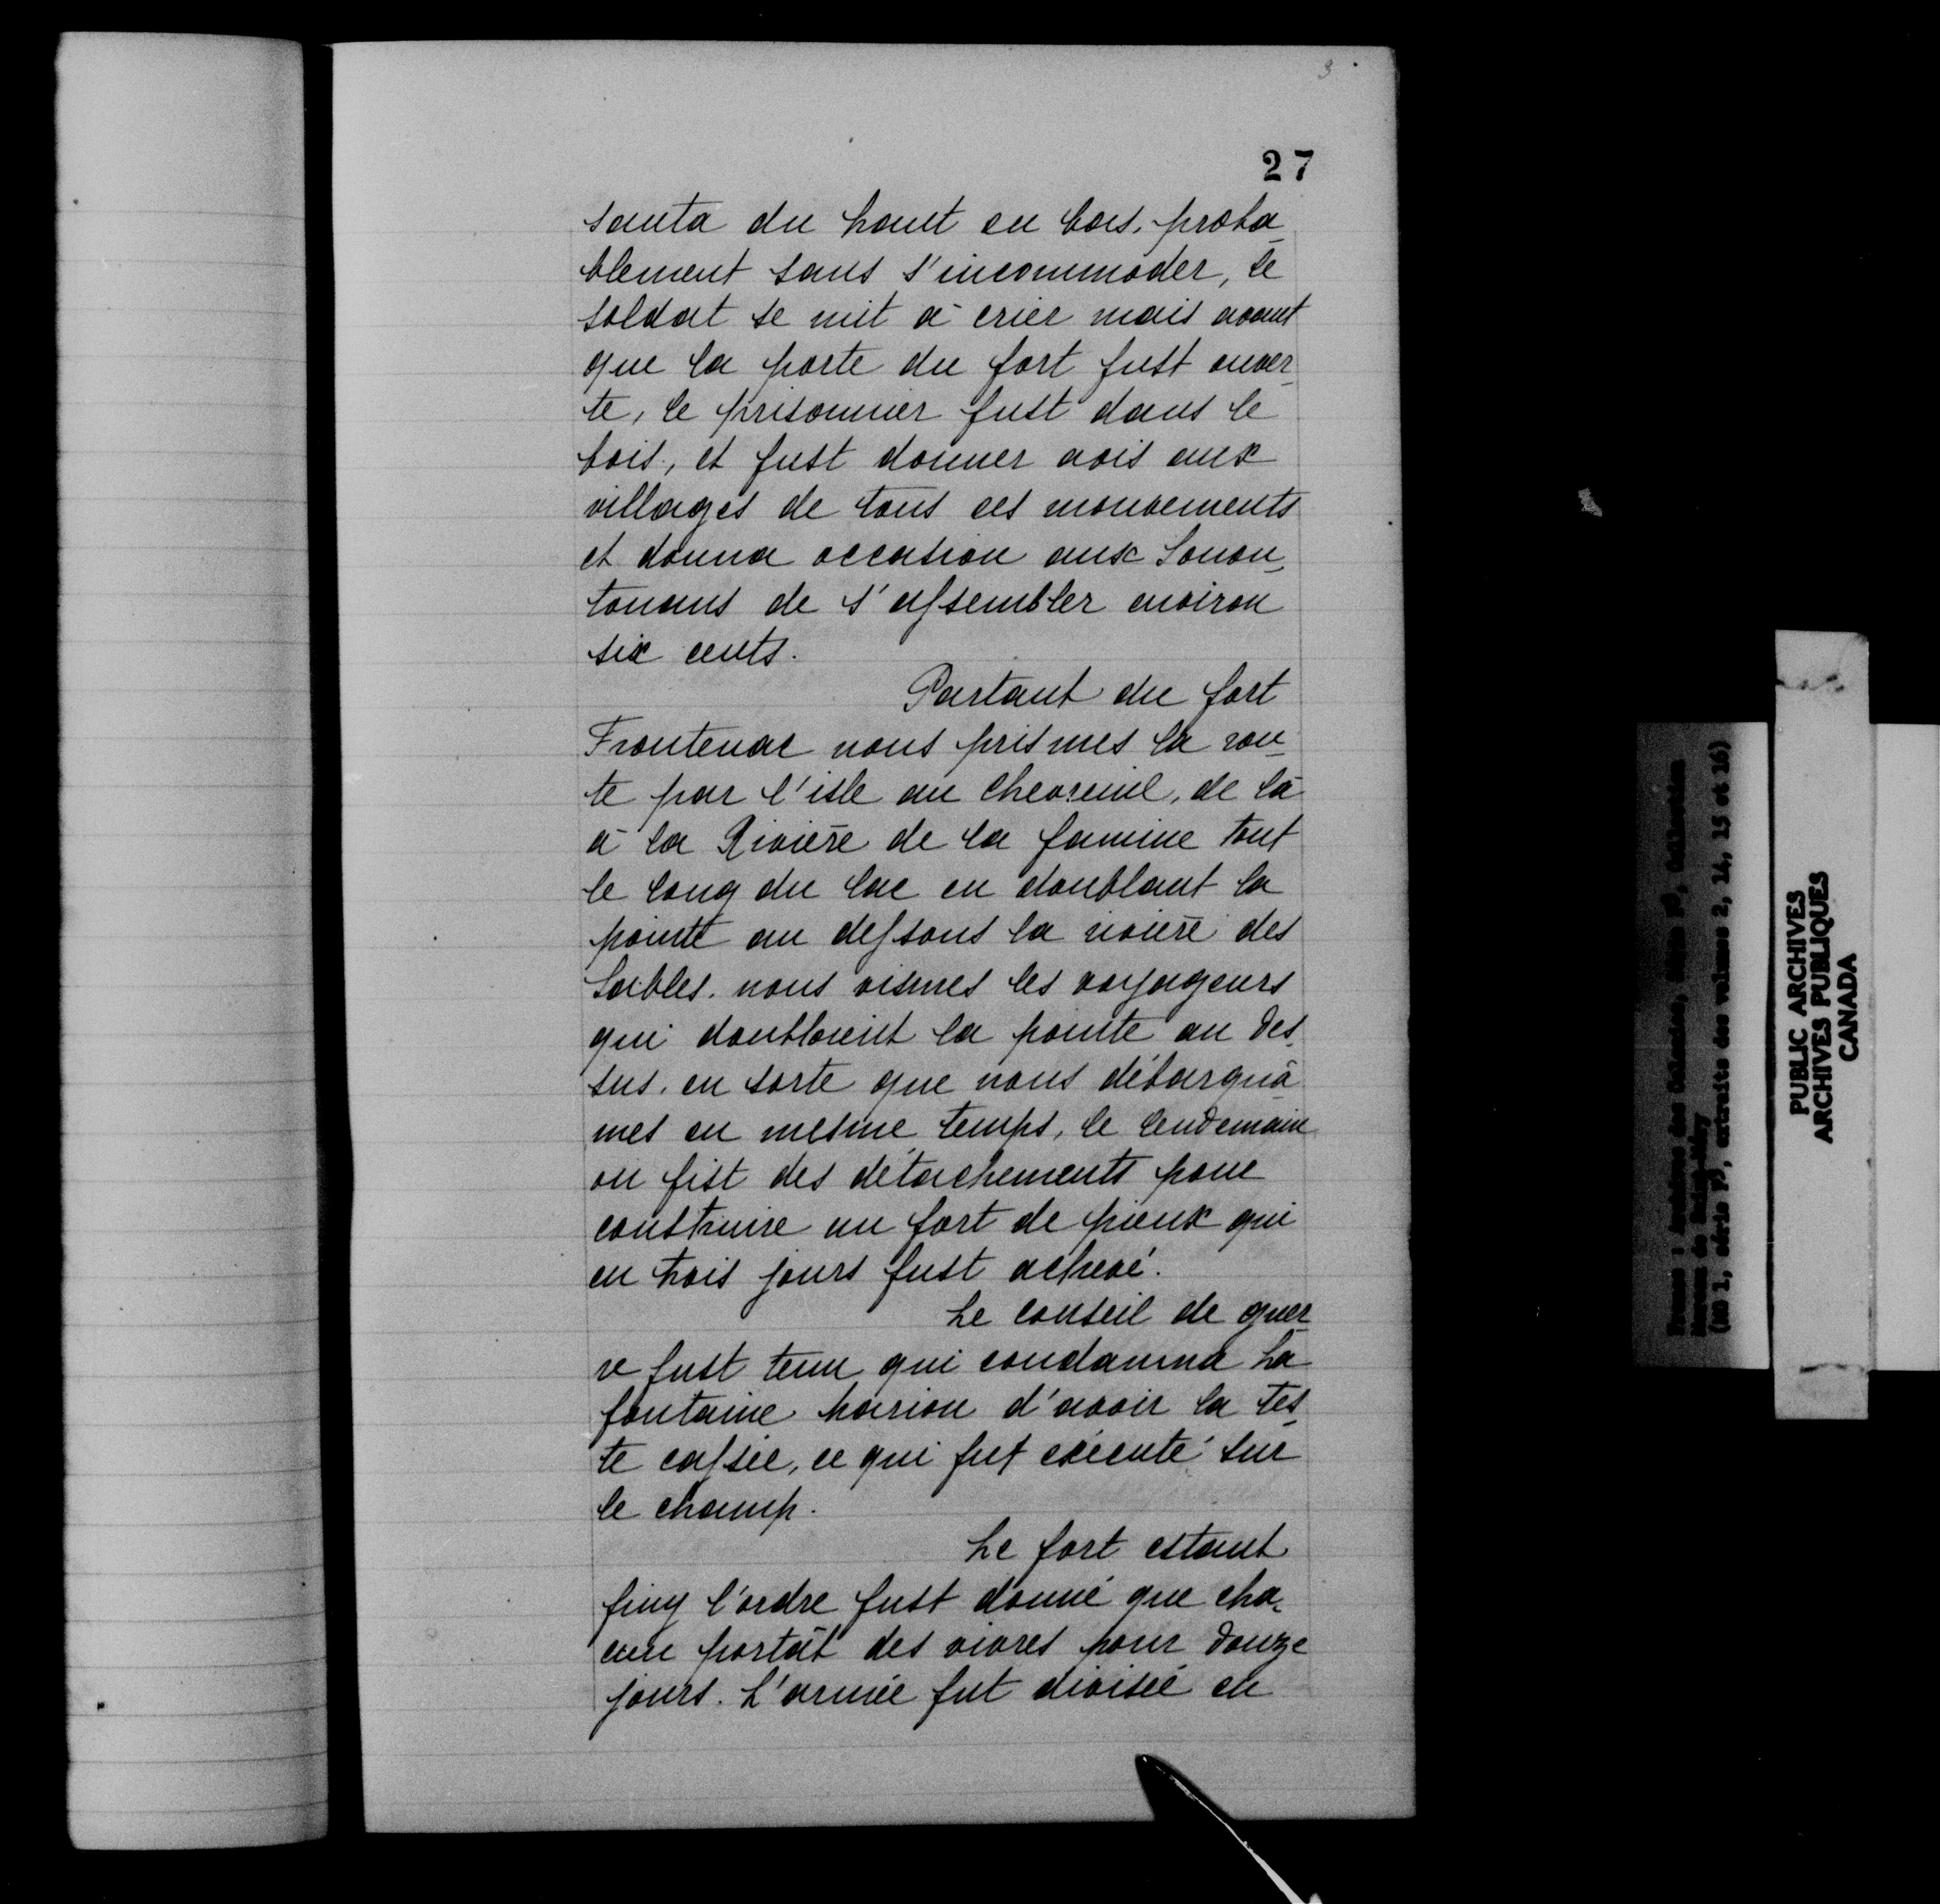 3
27
sauta du haut en bas, proba_
blement sans s'incommoder, le
soldat se mit à crier mais avant
que la porte du fort fust ouver_
te, le prisonnier fust dans le
bois, et fust donner avis aux
villages de tous ces mouvements
et donna occasion aux Sonon_
touans de s'assembler environ
six cents.
Partant du fort
Frontenac nous prismes la rou_
te par l'isle au Chevreuil, de là
à la Rivière de la famine tout
le long du lac en doublant la
pointe au dessous la rivière des
Sables. nous vismes les voyageurs
qui doubloient la pointe au des_
sus. en sorte que nous débarquâ_
mes en mesme temps, le lendemain
on fist des détachements pour
construire un fort de pieux qui
en trois jours fust achevé.
Le conseil de guer_
re fust tenu qui condamna La
fontaine Marion d'avoir la tes_
te cassée, ce qui fut exécuté sur
le champ.
Le fort estant
finy l'ordre fust donné que cha_
cun portât des vivres pour douze
jours. L'armée fut divisée en
France : Archives des Colonies, Série F3, Collection
Moreau de Saint-Méry
(MG 1, série F3, extraits des volumes 2, 14, 15 et 16)
PUBLIC ARCHIVES
ARCHIVES PUBLIQUES
CANADA